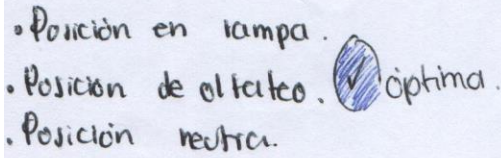 • Posición en rampa.
• Posición de olfateo. ✓ óptima.
• Posición neutra.